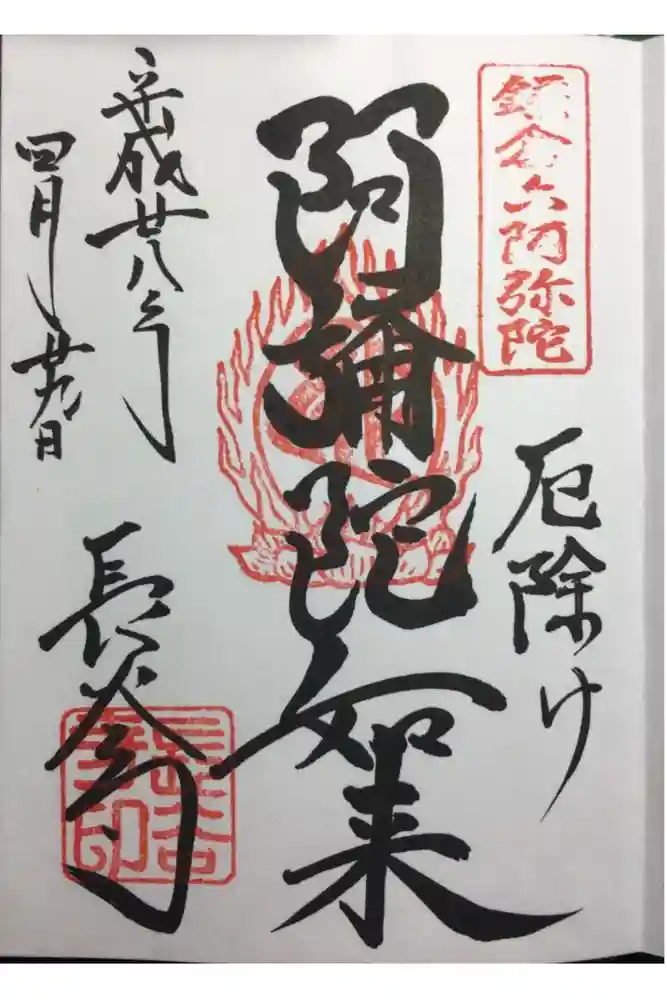 鎌倉六阿弥陀
厄除け
阿彌陀如来
平成廿八年
四月廿九日
長谷寺
長谷
寺印